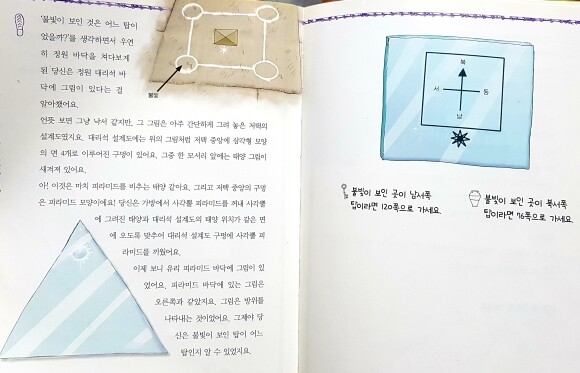 '불빛이 보인 것은 어느 탑이
었을까?'를 생각하면서 우연
히 정원 바닥을 쳐다보게
된 당신은 정원 대리석 바
닥에 그림이 있다는 걸
알아챘어요.
언뜻 보면 그냥 낙서 같지만, 그 그림은 아주 간단하게 그려 놓은 저택의
설계도였지요. 대리석 설계도에는 위의 그림처럼 저택 중앙에 삼각형 모양
의 면 4개로 이루어진 구멍이 있어요. 그중 한 모서리 앞에는 태양 그림이
새겨져 있어요.
아! 이것은 마치 피라미드를 비추는 태양 같아요. 그리고 저택 중앙의 구멍
은 피라미드 모양이에요! 당신은 가방에서 사각뿔 피라미드를 꺼내 사각뿔
에 그려진 태양과 대리석 설계도의 태양 위치가 같은 면
에 오도록 맞추어 대리석 설계도 구멍에 사각뿔 피
라미드를 끼웠어요.
이제 보니 유리 피라미드 바닥에 그림이 있
었어요. 피라미드 바닥에 있는 그림은
오른쪽과 같았지요. 그림은 방위를
나타내는 것이었어요. 그제야 당
신은 불빛이 보인 탑이 어느
탑인지 알 수 있었지요.
불빛
북
서 동
남
불빛이 보인 곳이 남서쪽
탑이라면 120쪽으로 가세요.
불빛이 보인 곳이 북서쪽
탑이라면 76쪽으로 가세요.